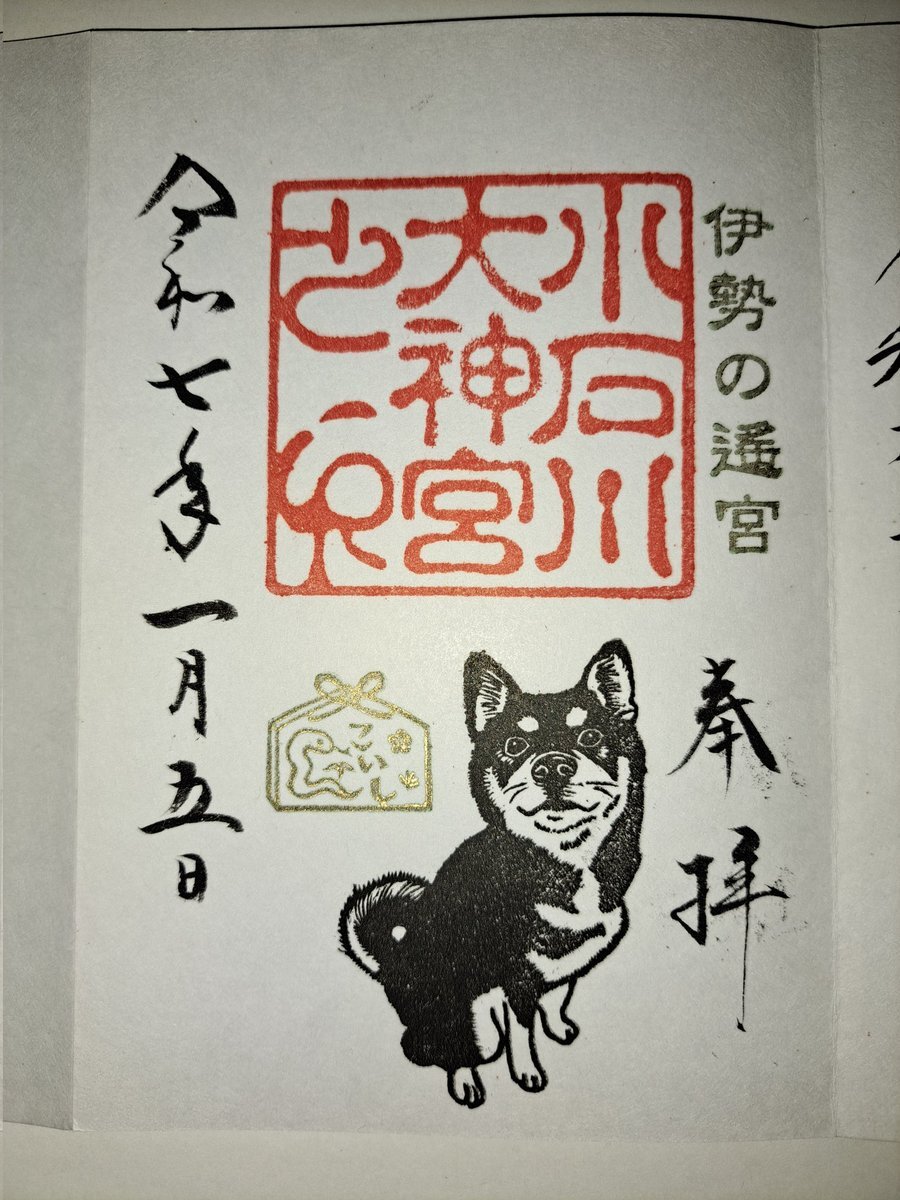 伊勢の遙宮
奉拝
小石川
大神宮
之印
こいし
令和七年一月五日